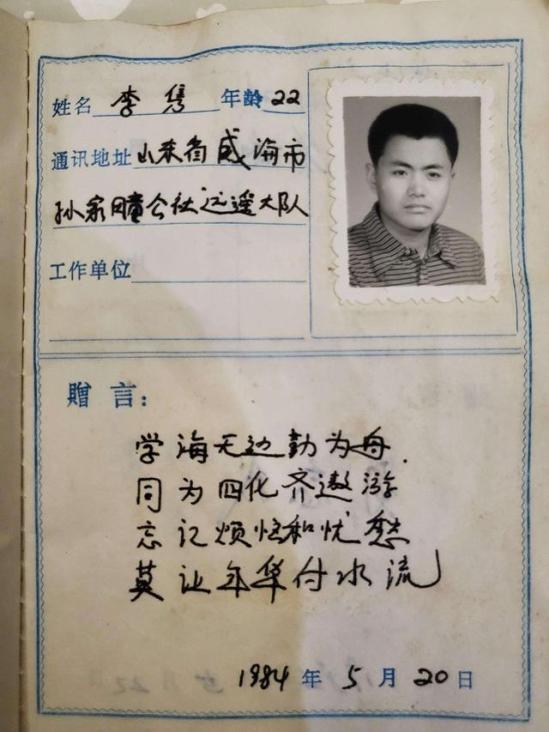 姓名 李隽 年龄 22
通讯地址 山东省威海市
孙家疃公社远遥大队
工作单位
赠言：
学海无边勤为舟
同为四化齐遨游
忘记烦恼和忧愁
莫让年华付水流
1984年5月20日